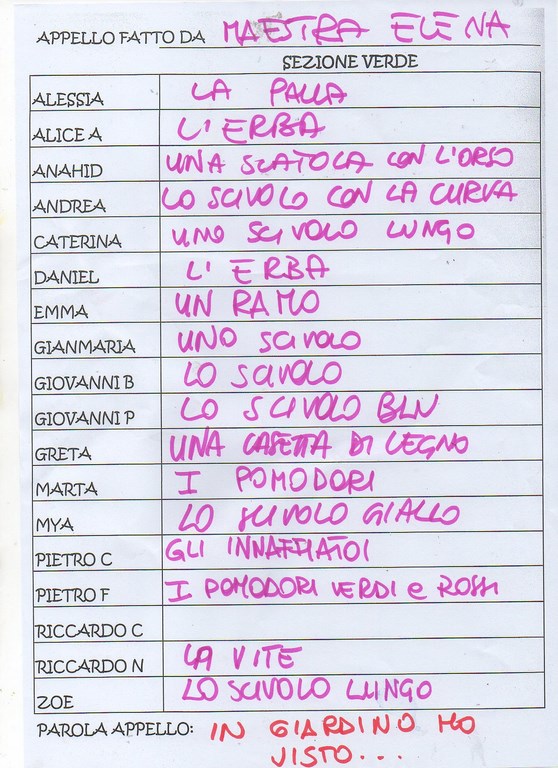 APPELLO FATTO DA MAESTRA ELENA
SEZIONE VERDE
ALESSIA LA PALLA
ALICE A L'ERBA
ANAHID UNA SCATOLA CON L'ORSO
ANDREA LO SCIVOLO CON LA CURVA
CATERINA UNO SCIVOLO LUNGO
DANIEL L'ERBA
EMMA UN RAMO
GIANMARIA UNO SCIVOLO
GIOVANNI B LO SCIVOLO
GIOVANNI P LO SCIVOLO BLU
GRETA UNA CASETTA DI LEGNO
MARTA I POMODORI
MYA LO SCIVOLO GIALLO
PIETRO C GLI INNAFFIATOI
PIETRO F I POMODORI VERDI e ROSSI
RICCARDO C
RICCARDO N LA VITE
ZOE LO SCIVOLO LUNGO
PAROLA APPELLO: IN GIARDINO HO
VISTO...